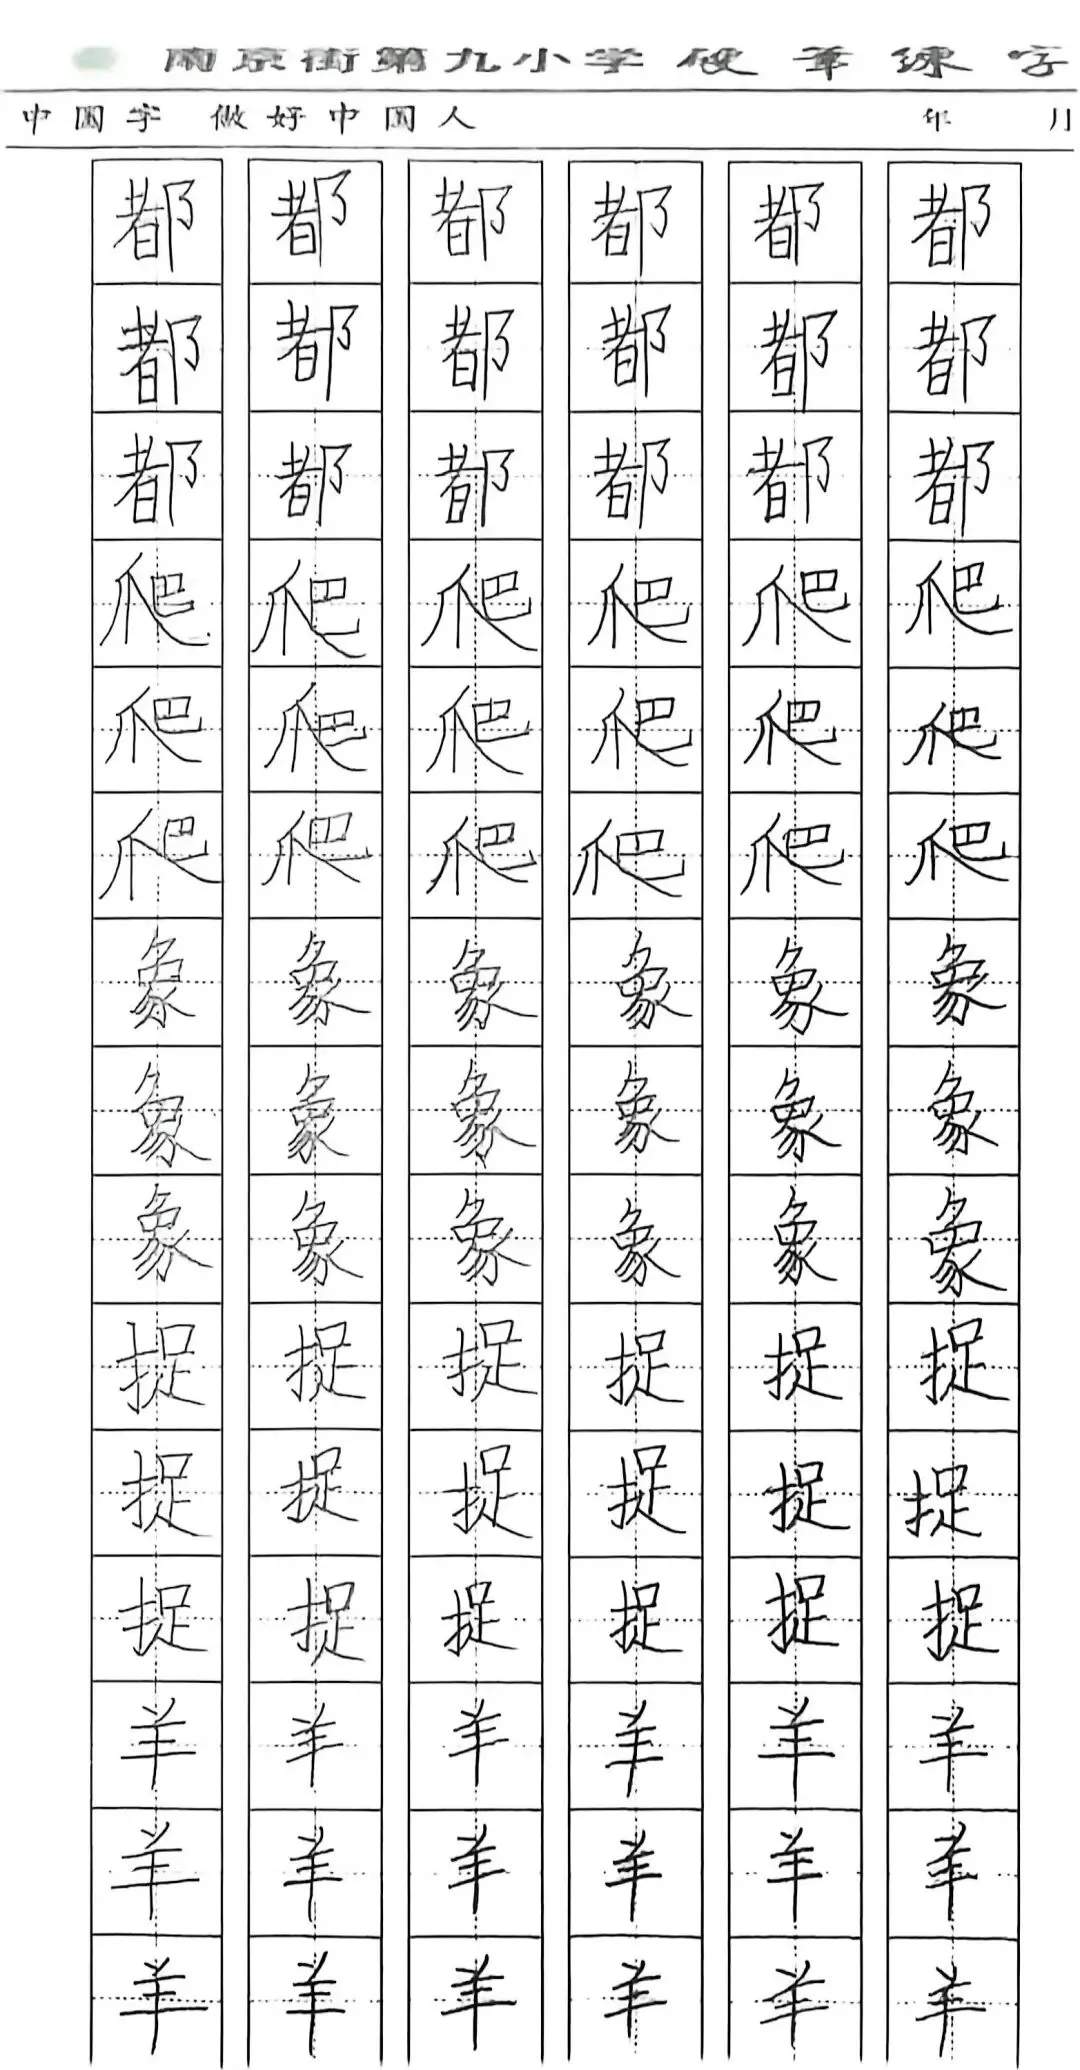 南京街第九小学 硬笔练字
中国字 做好中国人 年 月
都 都 都 都 都 都
都 都 都 都 都 都
都 都 都 都 都 都
爬 爬 爬 爬 爬 爬
爬 爬 爬 爬 爬 爬
爬 爬 爬 爬 爬 爬
象 象 象 象 象 象
象 象 象 象 象 象
象 象 象 象 象 象
捉 捉 捉 捉 捉 捉
捉 捉 捉 捉 捉 捉
捉 捉 捉 捉 捉 捉
羊 羊 羊 羊 羊 羊
羊 羊 羊 羊 羊 羊
羊 羊 羊 羊 羊 羊